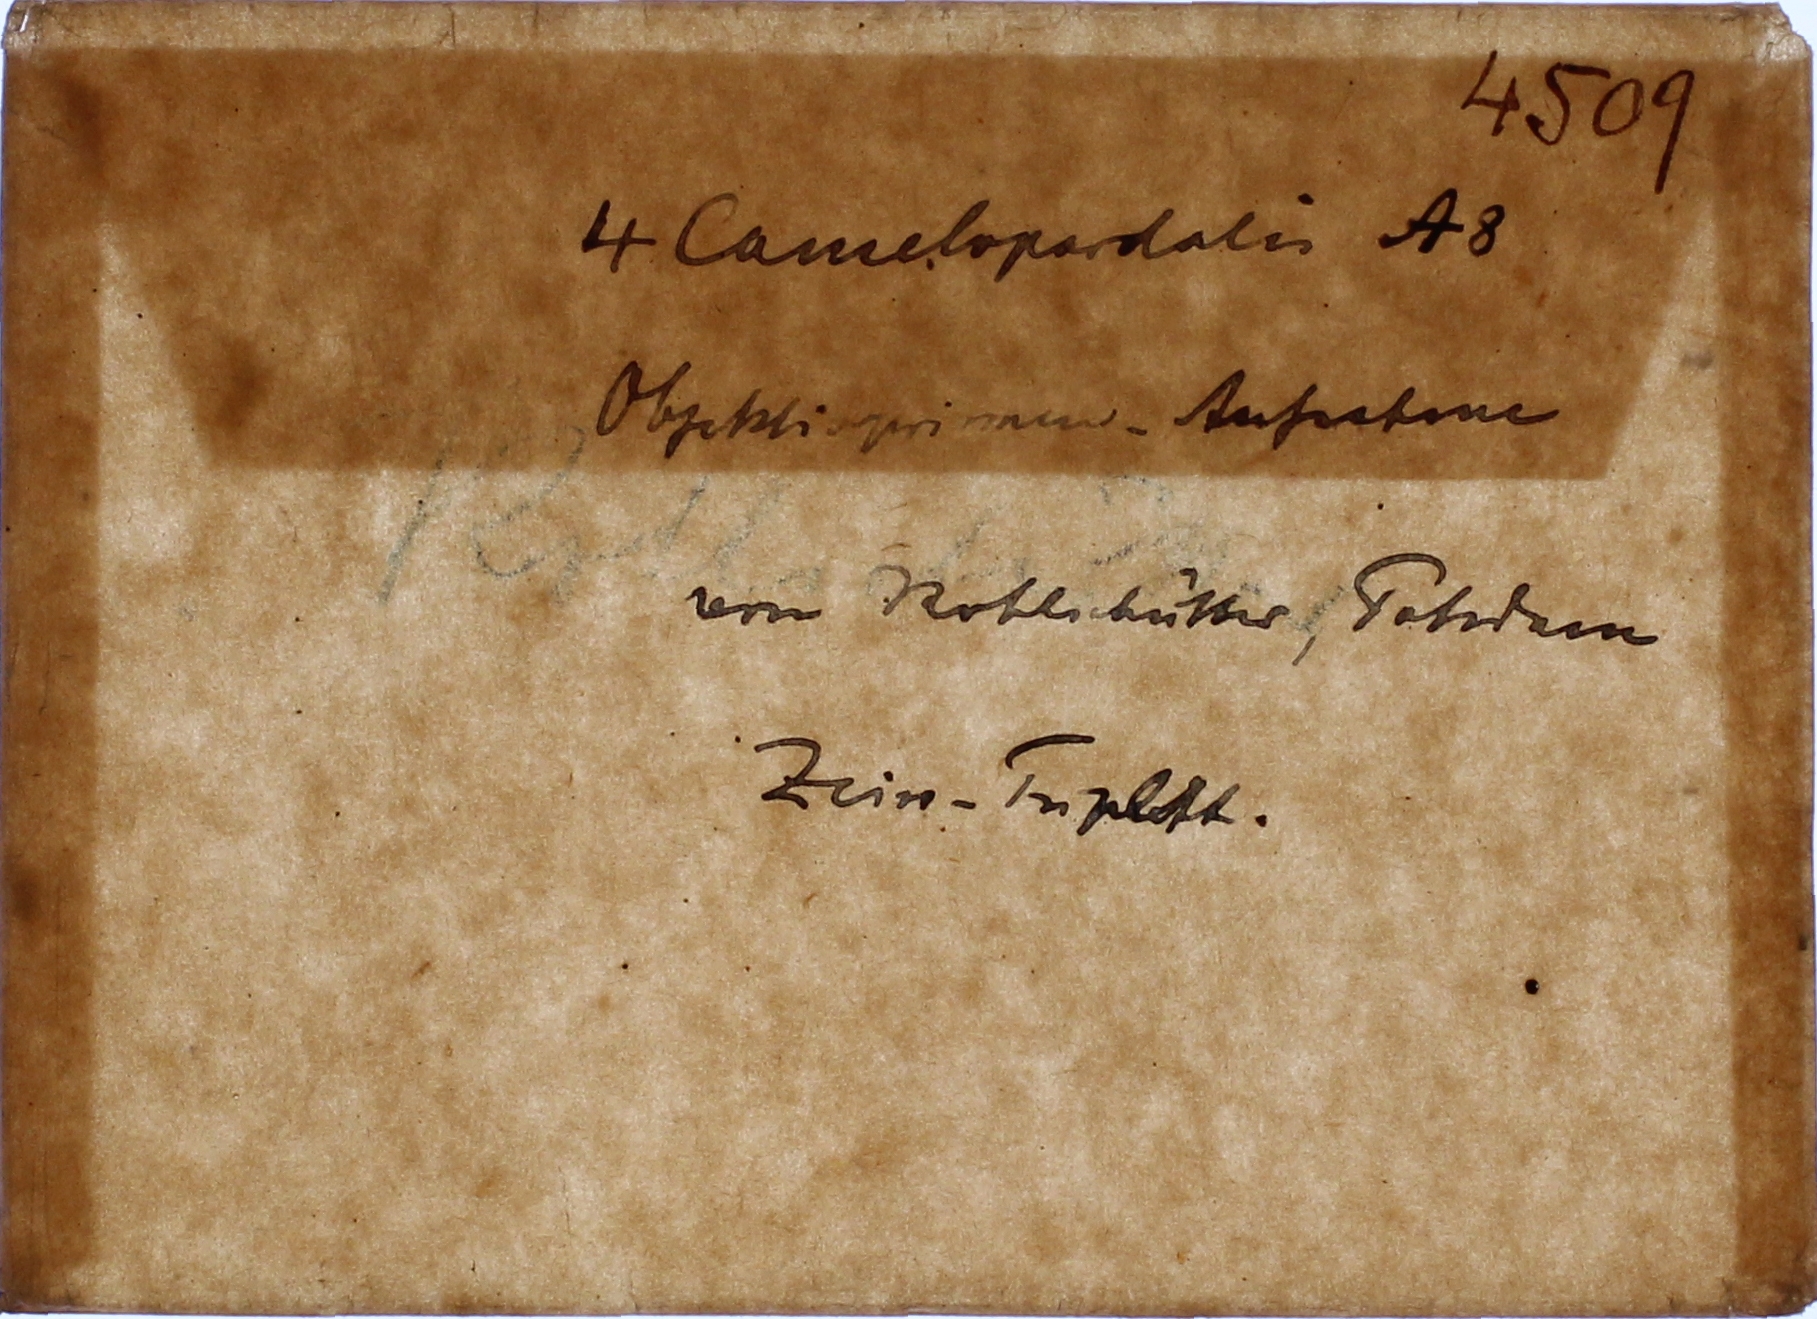 4509
4 Camelopardalis A8
Objektivprismen-Aufnahme
von Kohlschütter, Potsdam
Zeiss-Triplett.